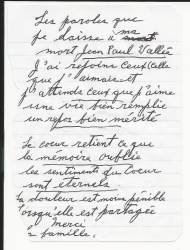 Les paroles que
je laisse à ma
mort Jean Paul Vallée
J'ai rejoins ceux (celles
que j'aimais et
j'attends ceux que j'aime
une vie bien remplie
un repos bien mérité
Le coeur retient ce que
la mémoire oublie
les sentiments du coeur
sont eternels
La douleur est moins pénible
lorsqu'elle est partagée
Merci
à famille.